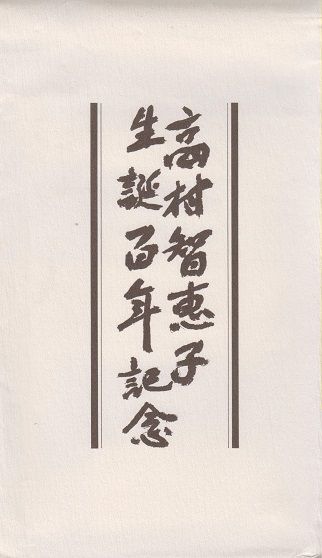 高村智恵子
生誕百年記念